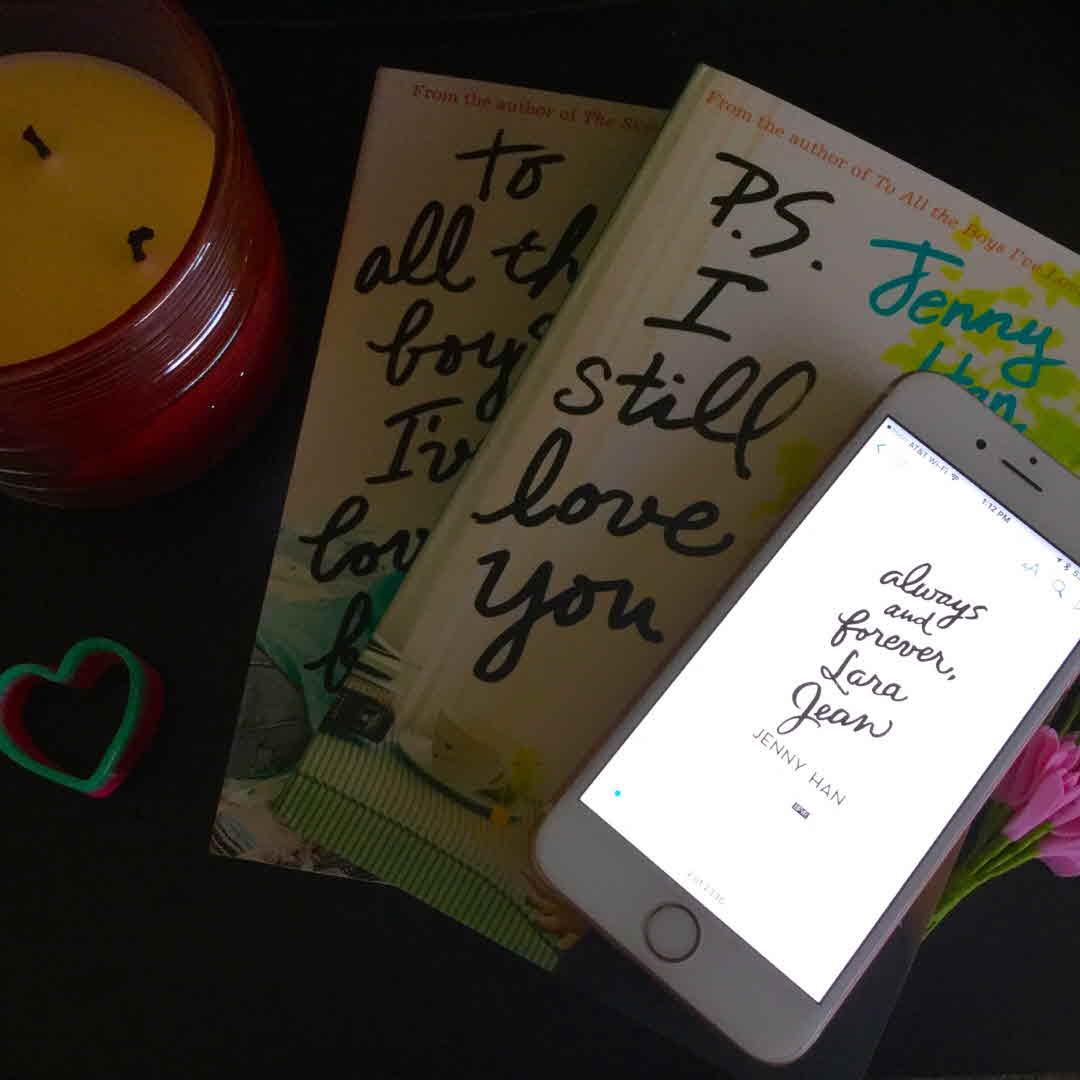 From the author of The
to
all th
boys
I'v
lov
b
From the author of To All the Boys I've Lov
P.S.
I
still
love
you
Jenny
Han
AT&T Wi-Fi
1:12 PM
AA
always
and
forever,
Lara
Jean
JENNY HAN